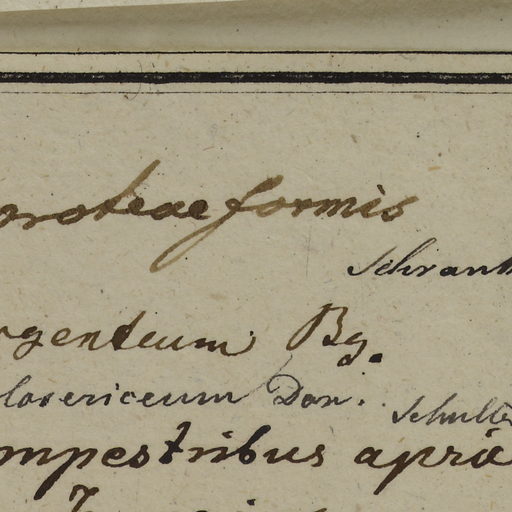 proteaeformis
Schrank
rgenteum Bg.
losericeum Don. Schultes
mpestribus apric